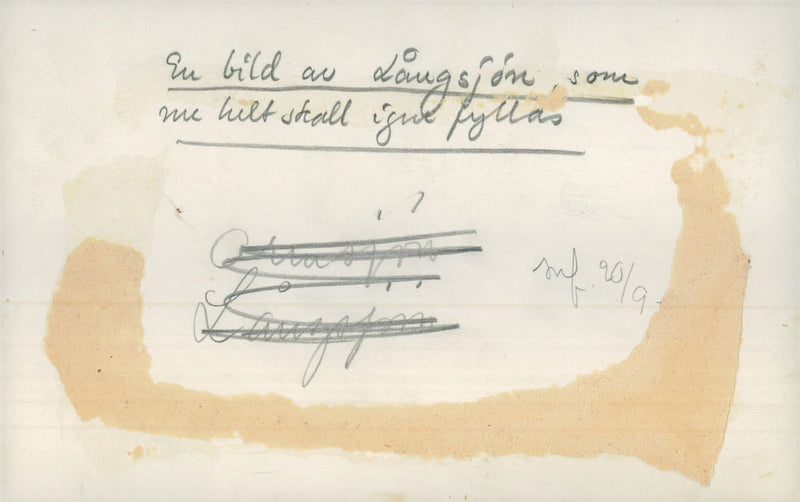 En bild av Långsjön, som
nu helt skall igenfyllas
Långsjön
inf. 20/9.